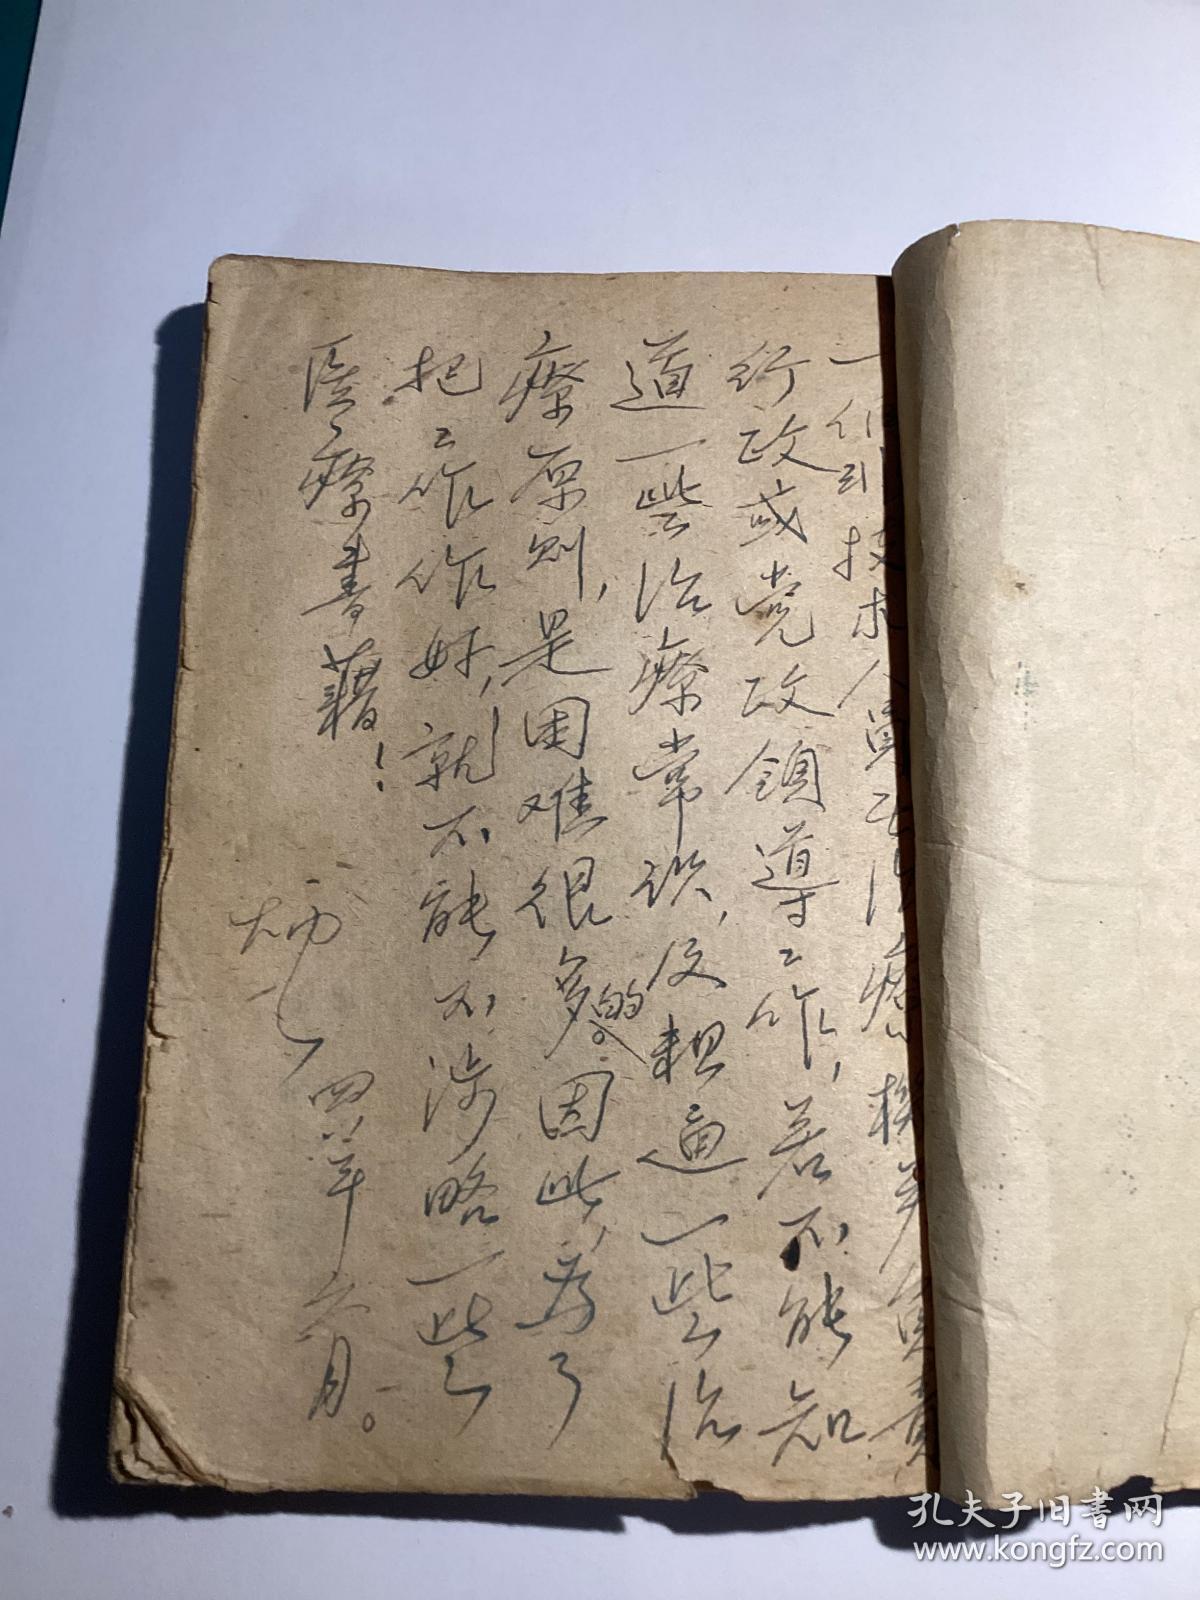 一個非技术人員在治療機关負責
行政或党政領導工作，若不能知
道一些治療常识，及粗通一些治
療原则，是困难很多的。因此，為了
把工作作好，就不能不涉略一些
医療書藉！
四八年六月。
孔夫子旧书网
www.kongfz.com